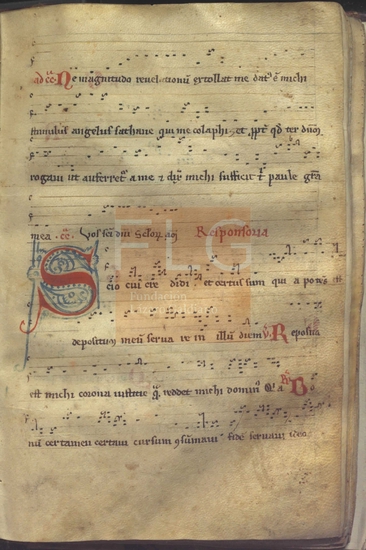 ad cc̄. Ne magnitudo revelationū extollat me dat' ē michi
stimulus angelus sathane qui me colaphiꝫet ppt' qd' ter dnm̄
rogavi ut auferret' a me ⁊ dix' michi sufficit t' paule grā
mea. Vos sc̄i dn̄i Responsoria
FLG
Fundación
Scio cui cre didi et certus sum qui a potens est
depositum meū serva re in illū diem v̄. Reposita
est michi corona iusticie q̄ reddet michi domin'
Bo
nū certamen certavi cursum ꝯsumavi fidē servavi ideo